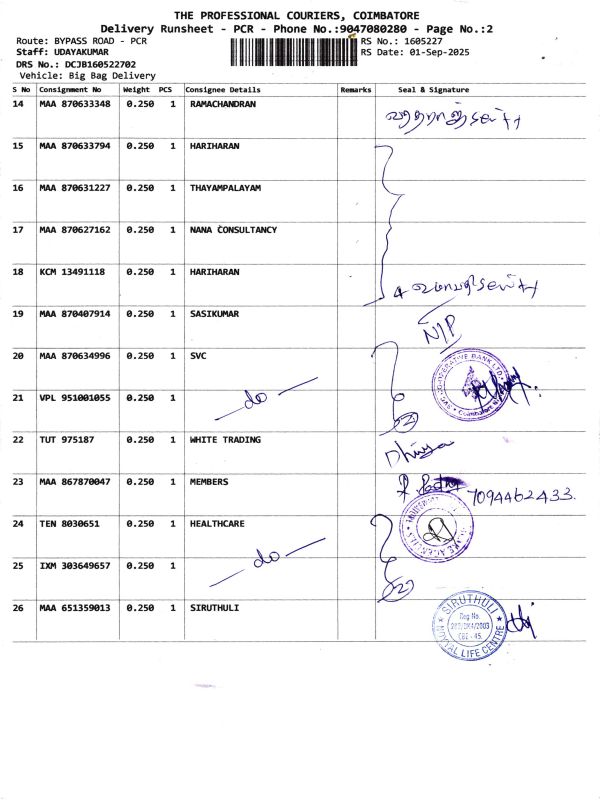 THE PROFESSIONAL COURIERS, COIMBATORE
Delivery Runsheet - PCR - Phone No.:9047080280 - Page No.:2
Route: BYPASS ROAD - PCR RS No.: 1605227
Staff: UDAYAKUMAR RS Date: 01-Sep-2025
DRS No.: DCJB160522702
Vehicle: Big Bag Delivery
S No Consignment No Weight PCS Consignee Details Remarks Seal & Signature
14 MAA 870633348 0.250 1 RAMACHANDRAN
15 MAA 870633794 0.250 1 HARIHARAN
16 MAA 870631227 0.250 1 THAYAMPALAYAM
17 MAA 870627162 0.250 1 NANA CONSULTANCY
18 KCM 13491118 0.250 1 HARIHARAN
4
19 MAA 870407914 0.250 1 SASIKUMAR
N/P
20 MAA 870634996 0.250 1 SVC
SVC CO-OPERATIVE BANK LTD.
21 VPL 951001055 0.250 1
do
2
22 TUT 975187 0.250 1 WHITE TRADING
Dhivya
23 MAA 867870047 0.250 1 MEMBERS
7094462433
24 TEN 8030651 0.250 1 HEALTHCARE
25 IXM 303649657 0.250 1
do
2
26 MAA 651359013 0.250 1 SIRUTHULI
SIRUTHULI
Reg No.
CBE - 45.
LIFE CENTRE